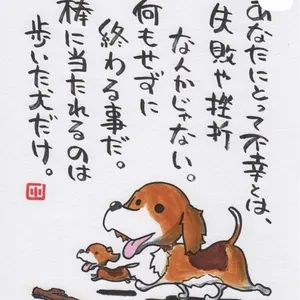 あなたにとって不幸とは、
失敗や挫折
なんかじゃない。
何もせずに
終わる事だ。
棒に当たれるのは
歩いた犬だけ。